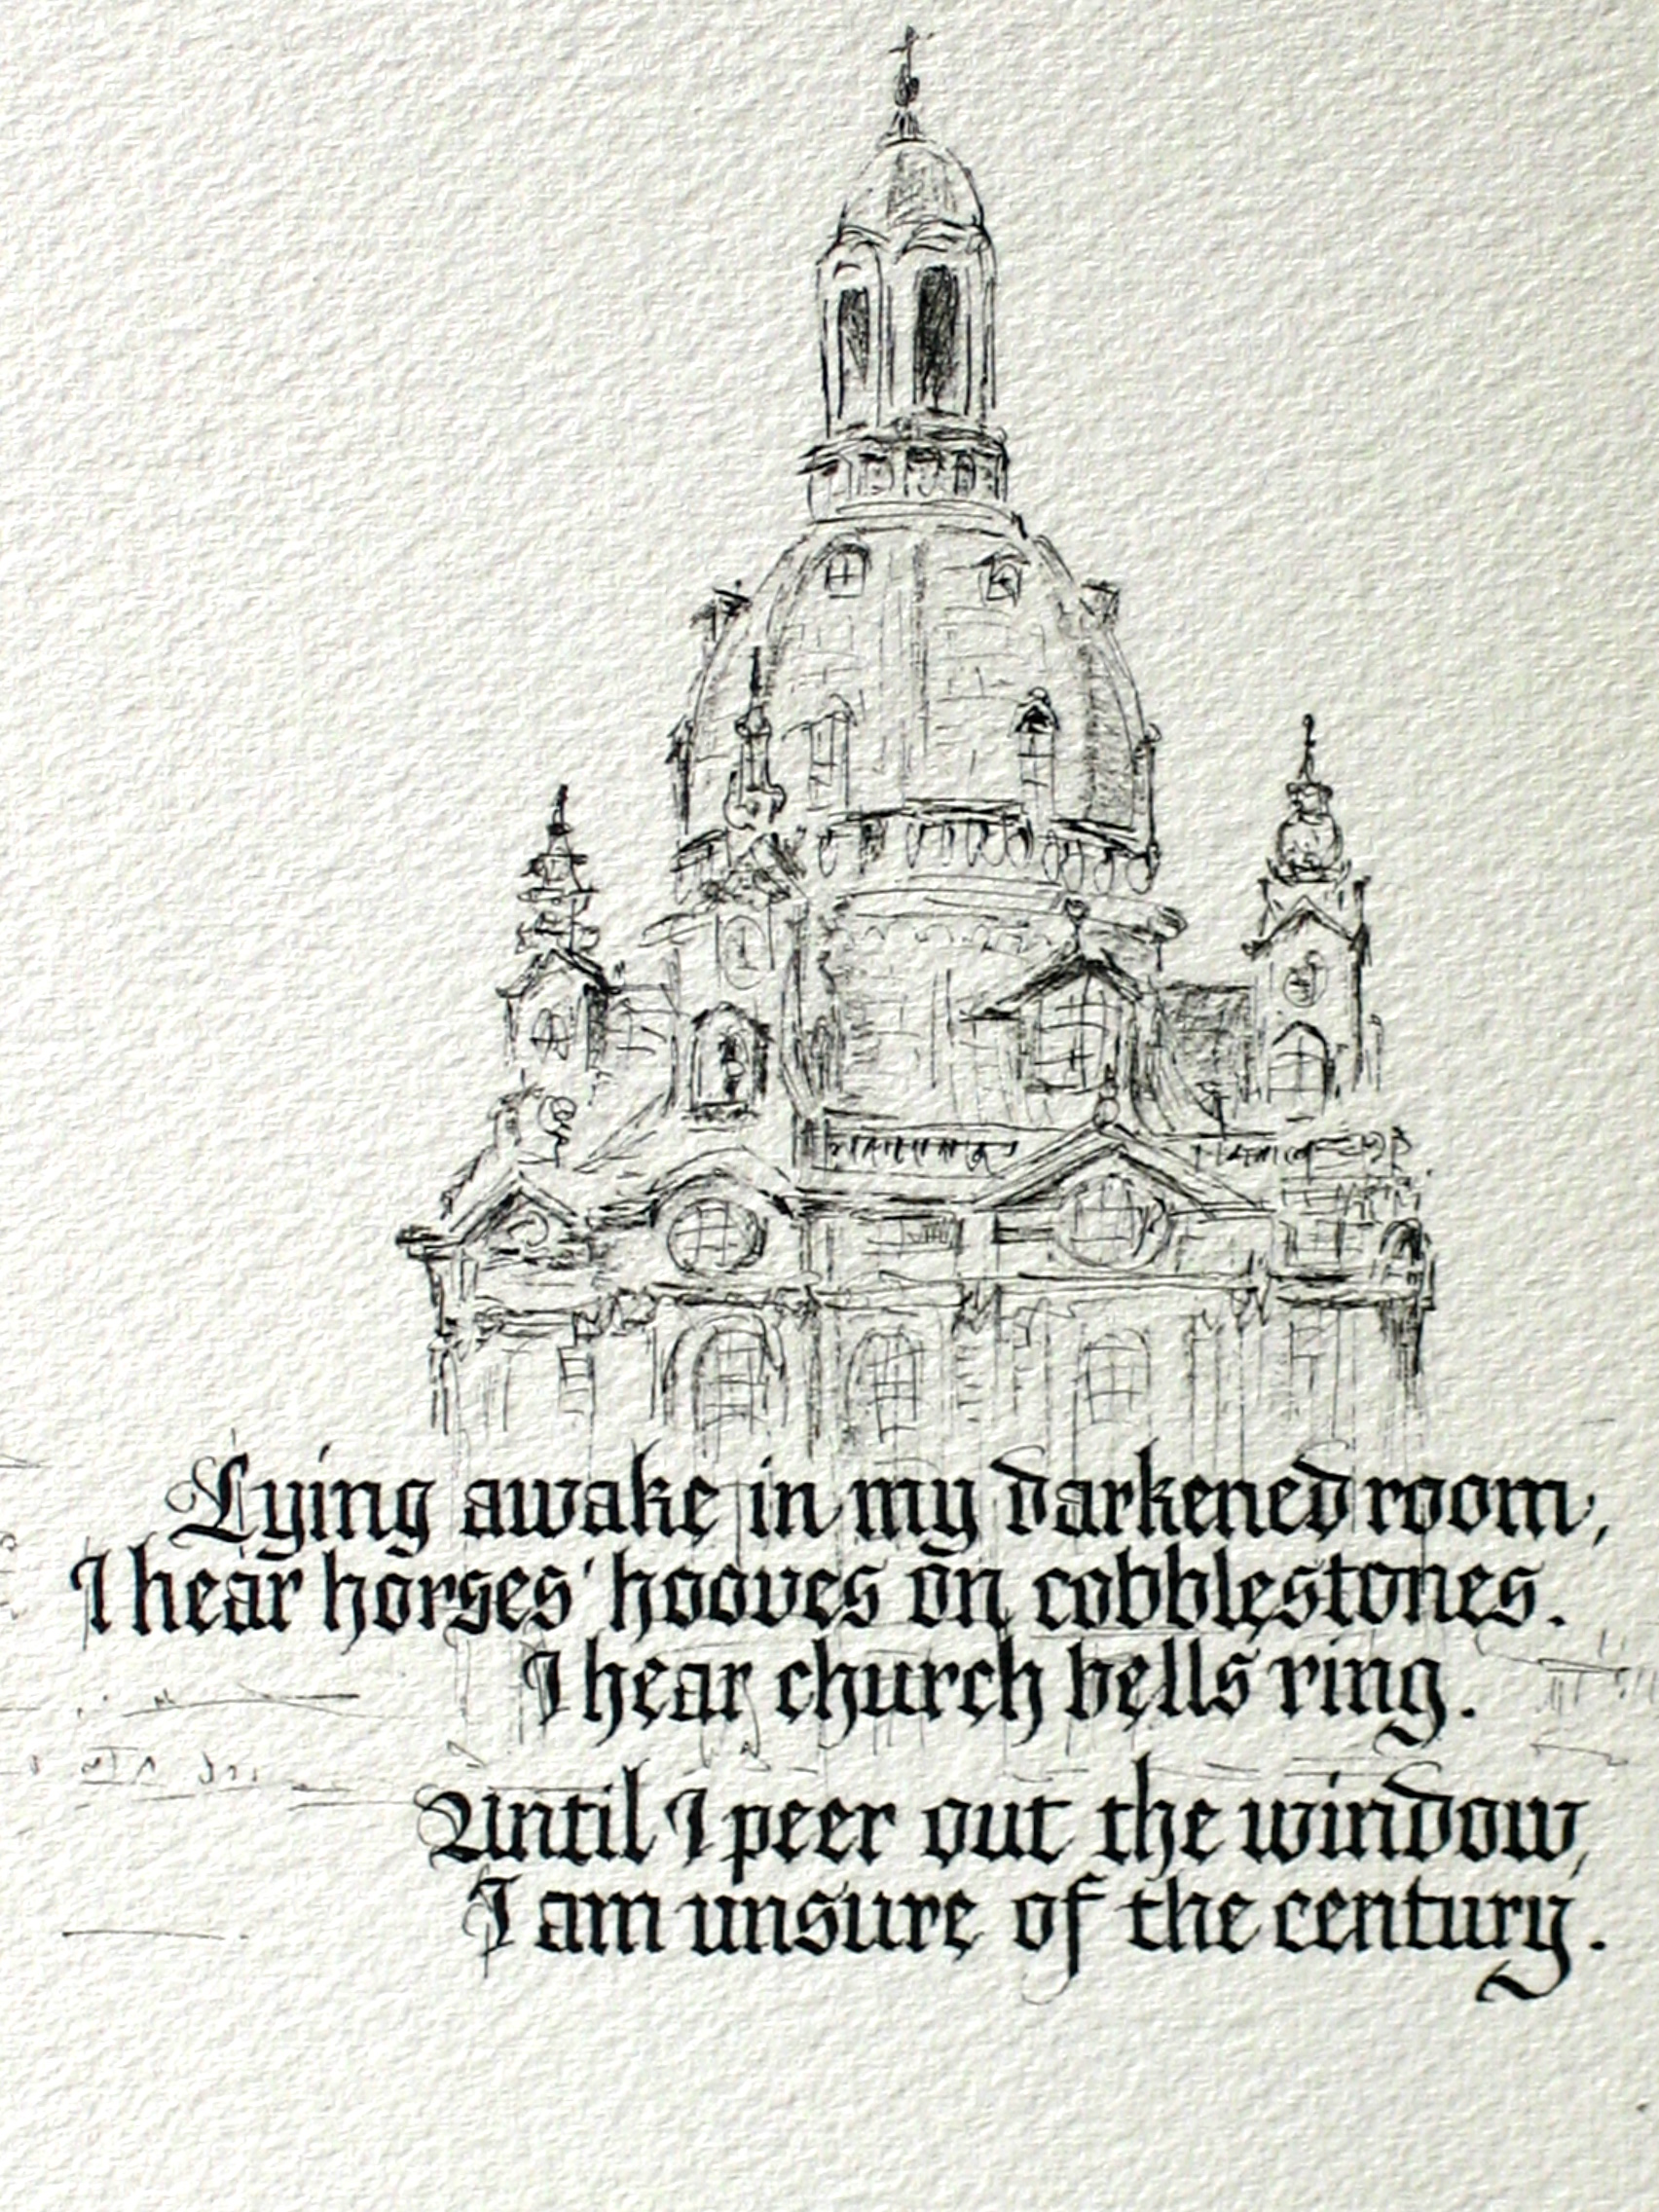 Lying awake in my darkened room,
I hear horses' hooves on cobblestones.
I hear church bells ring.
Until I peer out the window,
I am unsure of the century.